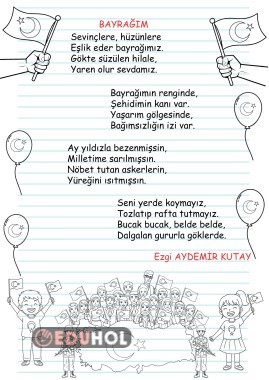 BAYRAĞIM
Sevinçlere, hüzünlere
Eşlik eder bayrağımız.
Gökte süzülen hilale,
Yaren olur sevdamız.
Bayrağımın renginde,
Şehidimin kanı var.
Yaşarım gölgesinde,
Bağımsızlığın izi var.
Ay yıldızla bezenmişsin,
Milletime sarılmışsın.
Nöbet tutan askerlerin,
Yüreğini ısıtmışsın.
Seni yerde koymayız,
Tozlatıp rafta tutmayız.
Bucak bucak, belde belde,
Dalgalan gururla göklerde.
Ezgi AYDEMİR KUTAY
EDUHOL